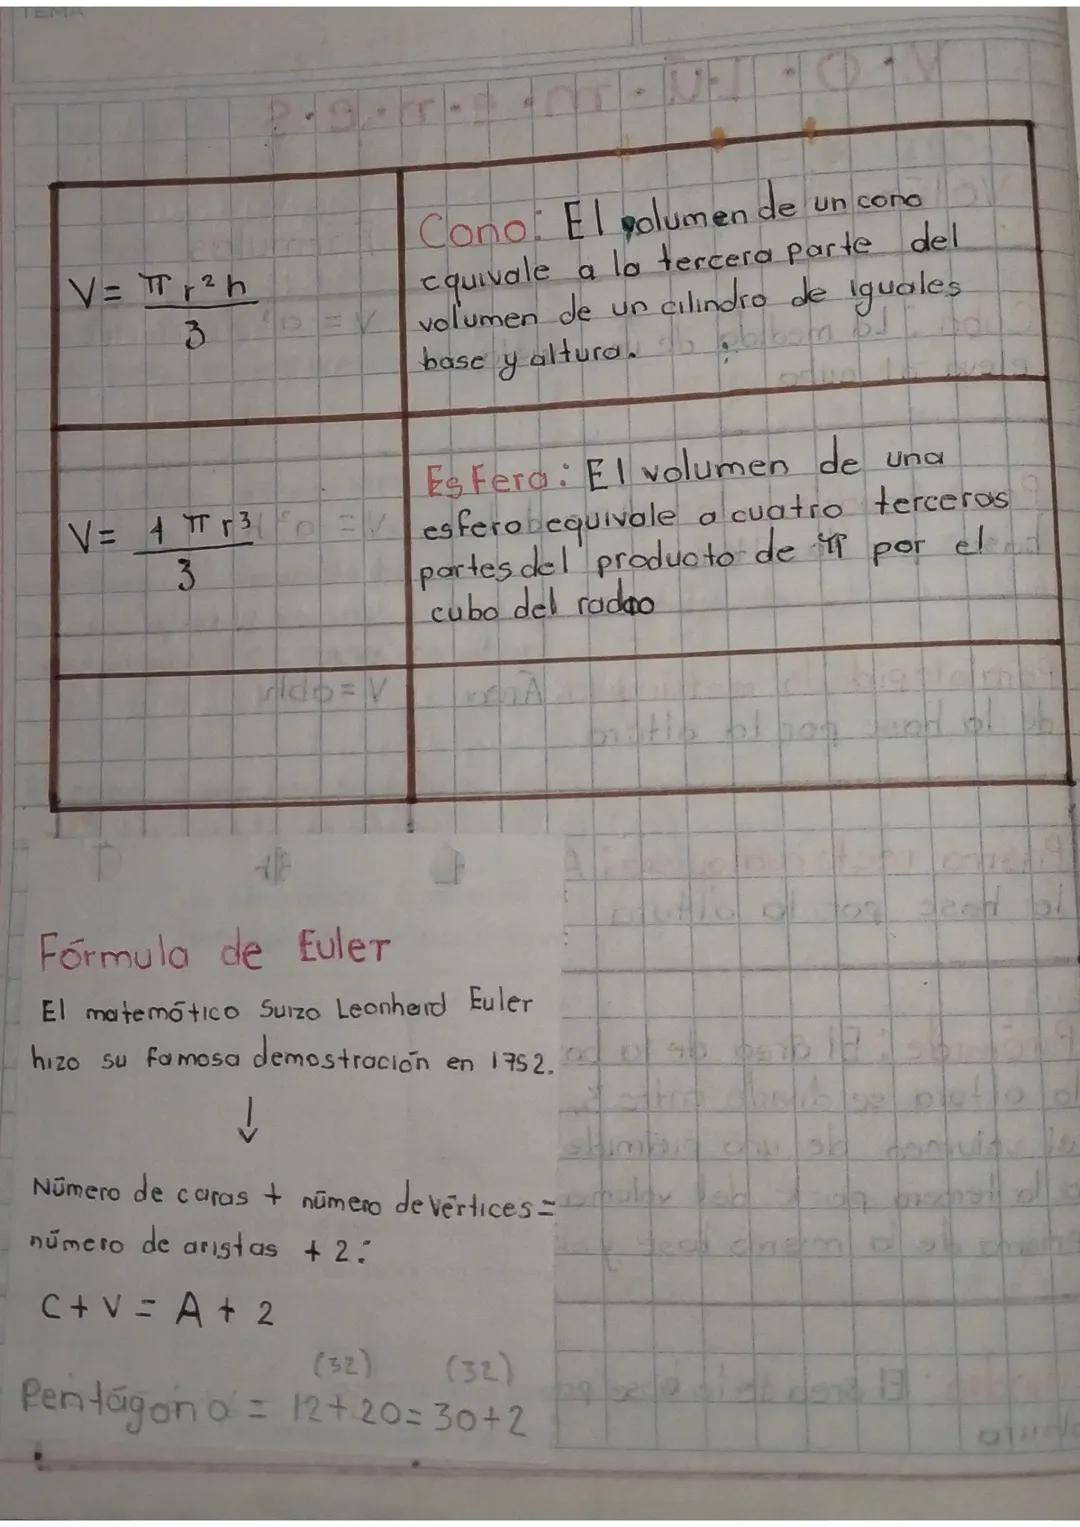 TEMA
V = π r² h
3
Cono: El volumen de un cono
equivale a la tercera parte del
volumen de un cilindro de iguales
base y altura.
V = 4 π r³
3
Esfera: El volumen de una
esfera equivale a cuatro terceras
partes del producto de π por el
cubo del radio
Fórmula de Euler
El matemático Suizo Leonhard Euler
hizo su famosa demostración en 1752.
↓
Número de caras + número de vértices =
número de aristas + 2:
C + V = A + 2
(32) (32)
Pentágono = 12+20=30+2